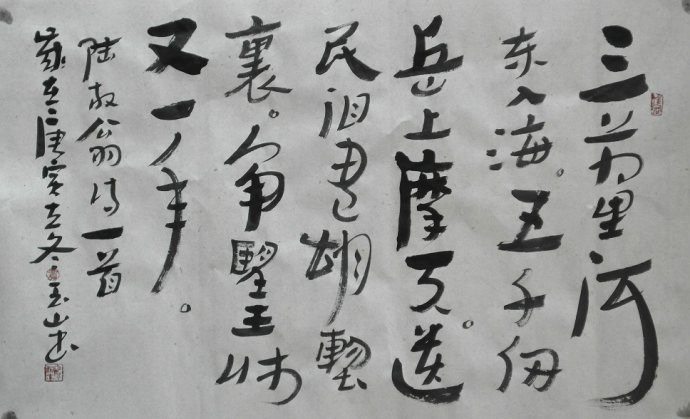 三万里河
东入海。五千仞
岳上摩天。遗
民泪尽胡塵
裏。南望王师
又一年。
陆放翁诗一首
岁在庚寅立冬玉山书